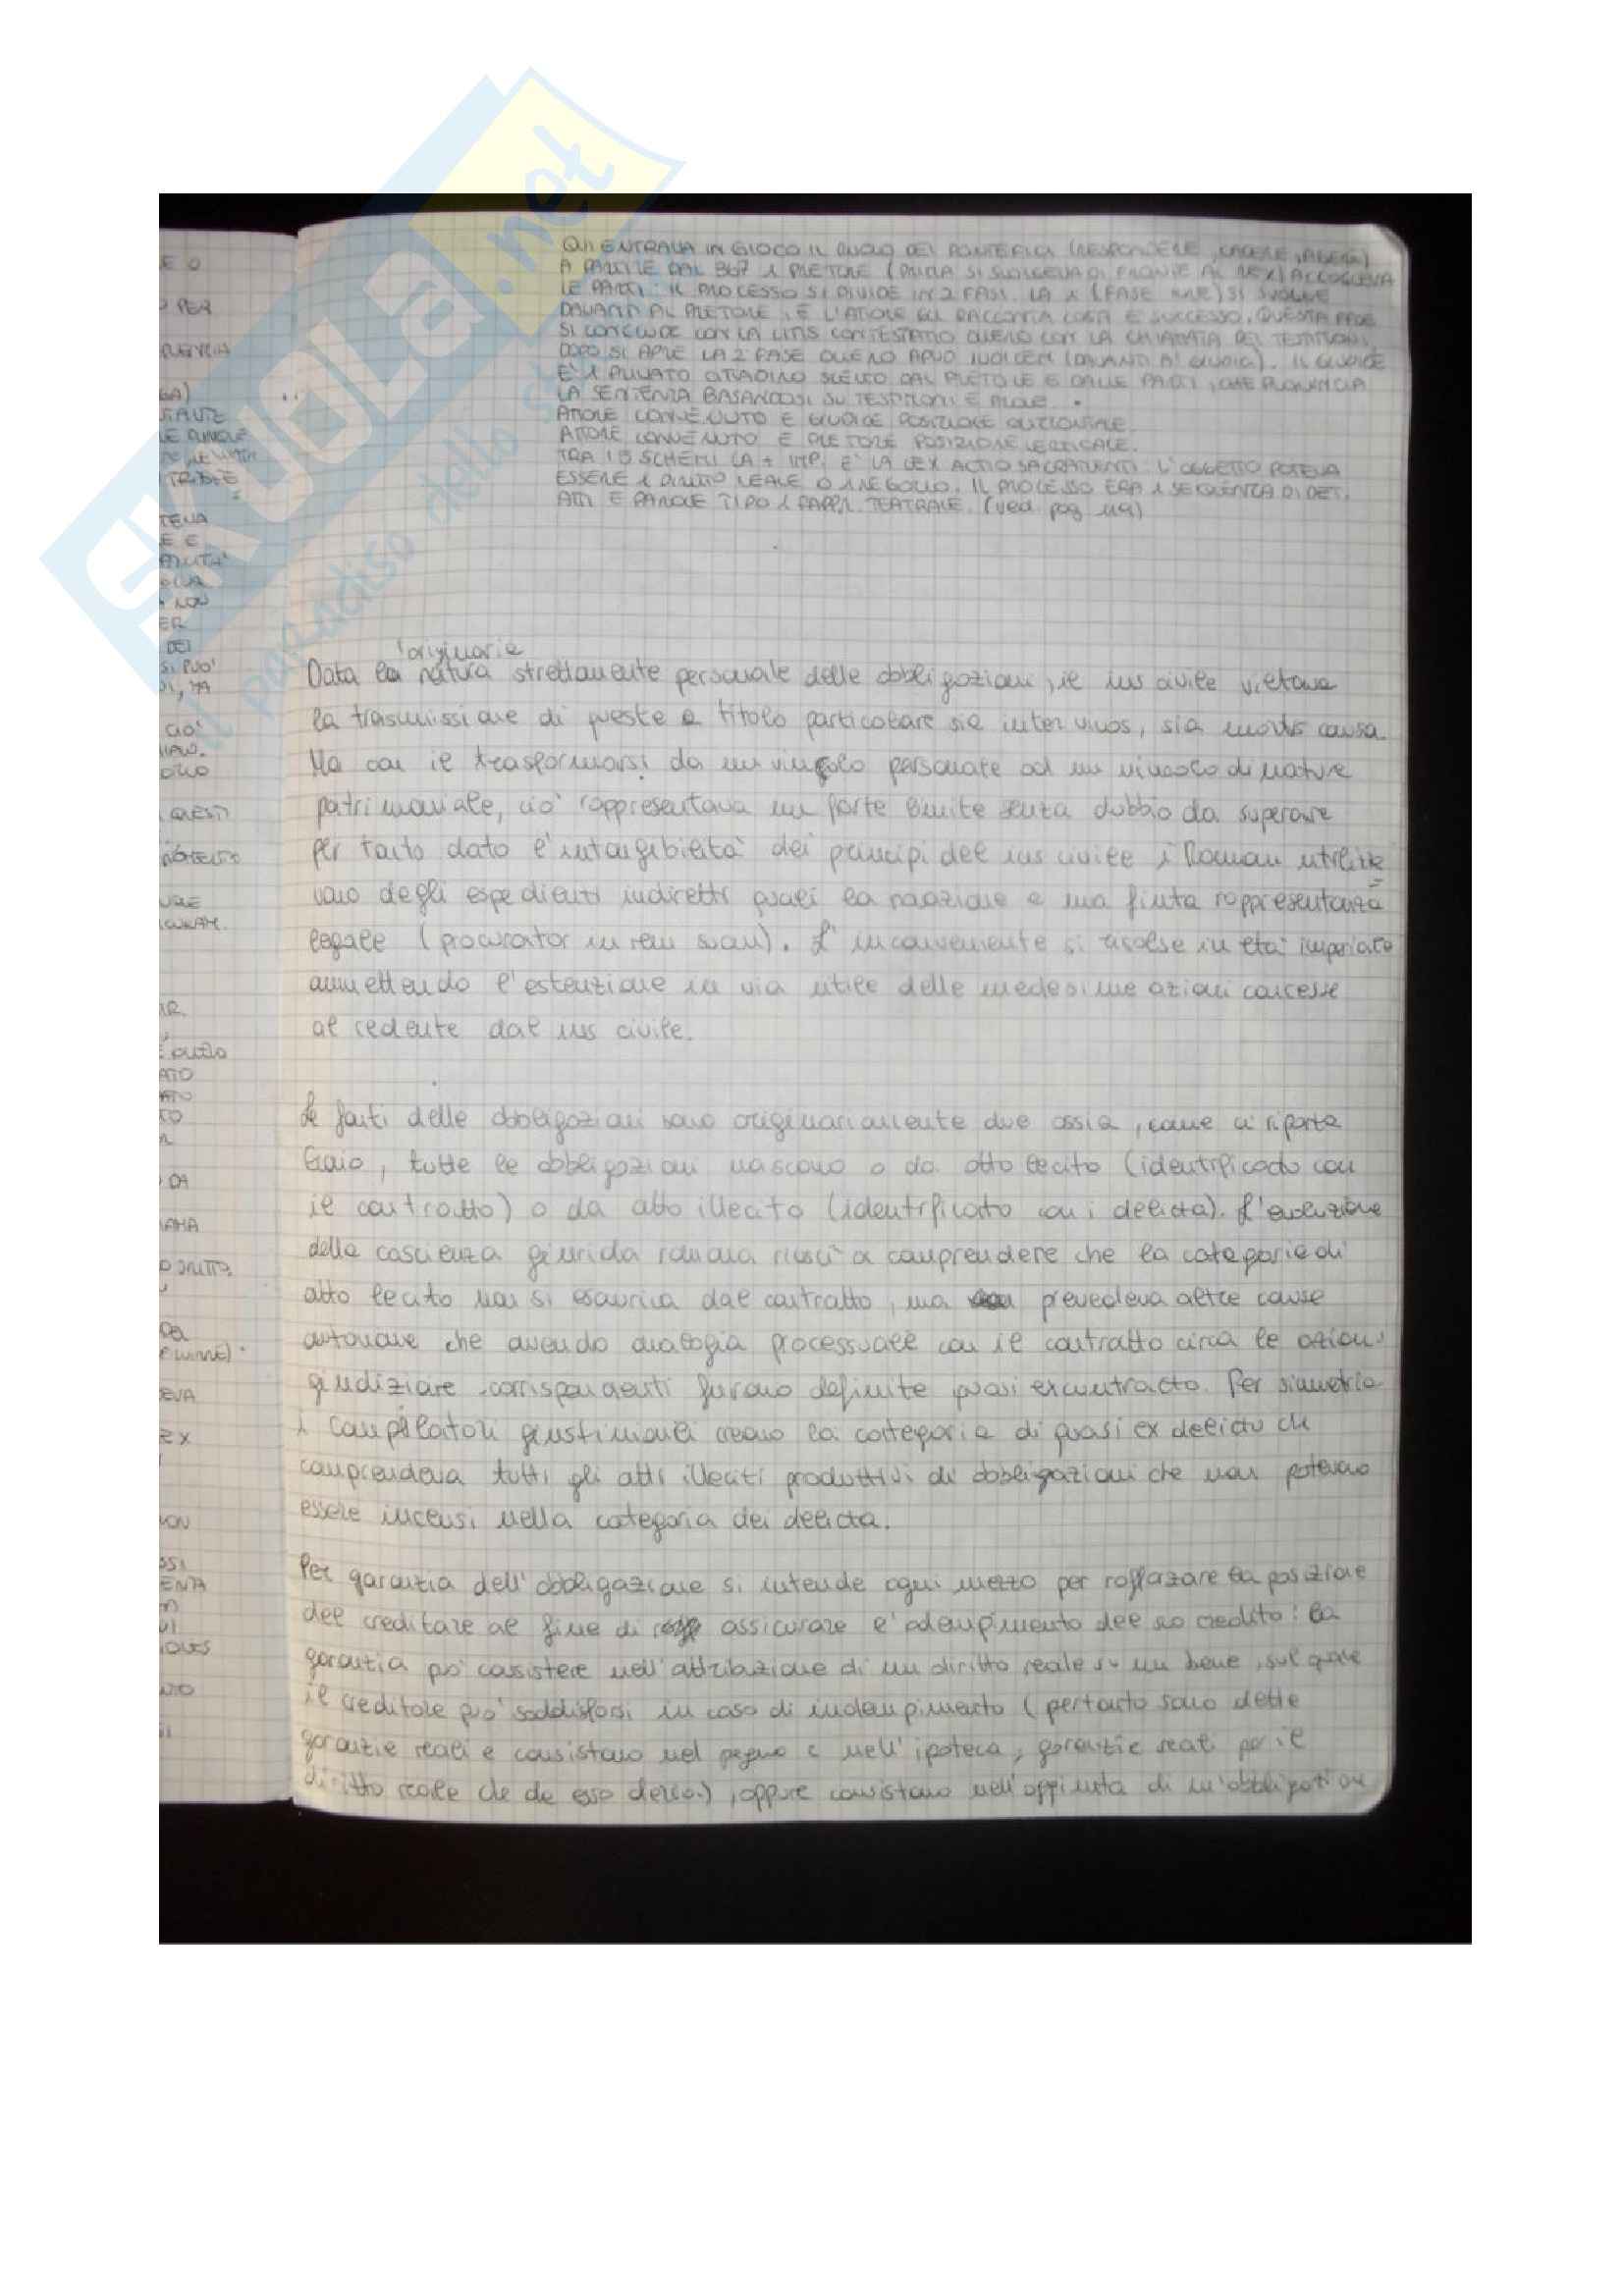 SKUOLA.net
il paradiso dello
QUI ENTRAVA IN GIOCO IL RUOLO DEI PONTEFICI (RESPONDERE, CAVERE, AGERE)
A PARTIRE DAL 367 1 PRETORE (PRIMA SI SVOLGEVA DI FRONTE AL REX) ACCOGLIEVA
LE PARTI: IL PROCESSO SI DIVIDE IN 2 FASI. LA 1 (FASE IURE) SI SVOLGE
DAVANTI AL PRETORE, E L'ATTORE GLI RACCONTA COSA È SUCCESSO. QUESTA FASE
SI CONCLUDE CON LA LITIS CONTESTATIO OVVERO CON LA CHIAMATA DEI TESTIMONI.
DOPO SI APRE LA 2° FASE OVVERO APUD IUDICEM (DAVANTI AI GIUDICI). IL GIUDICE
È 1 PRIVATO CITTADINO SCELTO DAL PRETORE E DALLE PARTI, CHE PRONUNCIA
LA SENTENZA BASANDOSI SU TESTIMONI E PROVE.
ATTORE CONVENUTO E GIUDICE POSIZIONE ORIZZONTALE.
ATTORE CONVENUTO E PRETORE POSIZIONE VERTICALE.
TRA I 5 SCHEMI LA + IMP. È LA LEX ACTIO SACRAMENTI: L'OGGETTO POTEVA
ESSERE 1 DIRITTO REALE O 1 NEGOZIO. IL PROCESSO ERA 1 SEQUENZA DI DET.
ATTI E PAROLE TIPO 1 RAPPR. TEATRALE. (ved pag 119)
originaria
Data la natura strettamente personale delle obbligazioni, il ius civile vietava
la trasmissione di queste a titolo particolare sia inter vivos, sia mortis causa.
Ma con il trasformarsi da un vincolo personale ad un vincolo di natura
patrimoniale, ciò rappresentava un forte limite senza dubbio da superare
per tanto dato l'intangibilità dei principi del ius civile i Romani utilizza
vano degli espedienti indiretti quali la novazione e una finta rappresentanza
legale (procurator in rem suam). L'inconveniente si risolse in età imperiale
ammettendo l'estenzione in via utile delle medesime azioni concesse
al cedente dal ius civile.
Le fonti delle obbligazioni sono originariamente due ossia, come ci riporta
Gaio, tutte le obbligazioni nascono o da atto lecito (identificato con
il contratto) o da atto illecito (identificato con i delicta). L'evoluzione
della coscienza giurida romana riuscì a comprendere che la categoria di
atto lecito non si esauriva dal contratto, ma prevedeva altre cause
autonome che avendo analogia processuale con il contratto circa le azioni
giudiziare corrispondenti furono definite quasi ex contracto. Per simmetria
i compilatori giustinianei creano la categoria di quasi ex delicto che
comprendeva tutti gli atti illeciti produttivi di obbligazioni che non potevano
essere incensi nella categoria dei delicta.
Per garanzia dell'obbligazione si intende ogni mezzo per rafforzare la posizione
del creditore al fine di assicurare l'adempimento del suo credito: la
garanzia può consistere nell'attribuzione di un diritto reale su un bene, sul quale
il creditore può soddisfarsi in caso di indempimento (pertanto sono dette
garanzie reali e consistono nel pegno e nell'ipoteca, garanzie reali per il
diritto reale che da esso deriva), oppure consistono nell'aggiunta di un'obbligazione